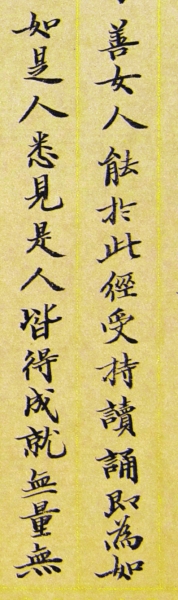 善女人能於此經受持讀誦即為如
如是人悉見是人皆得成就無量無